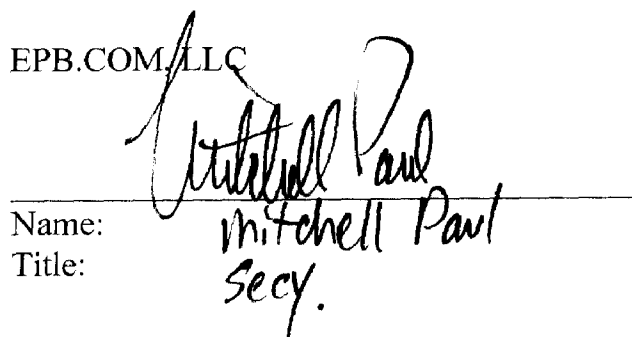 EPB.COM, LLC
Mitchell Paul
Name: Mitchell Paul
Title: Secy.